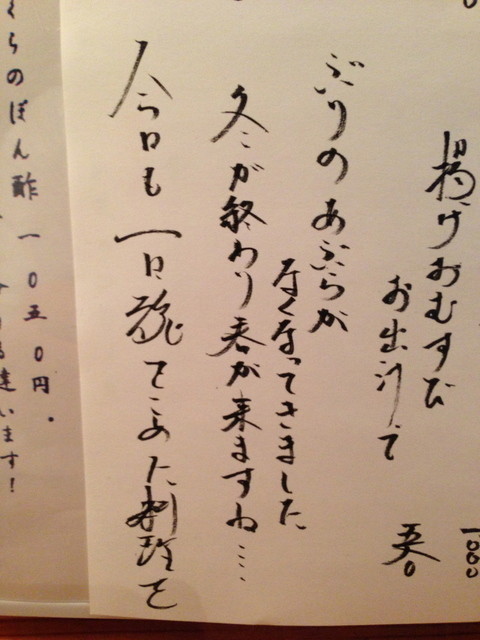 揚げおむすび
お出汁で
ぶりのあぶらが
なくなってきました
冬が終わり春が来ますね…
今日も一日魂をこめた料理を
くらのぽん酢一〇五〇円.
違います!